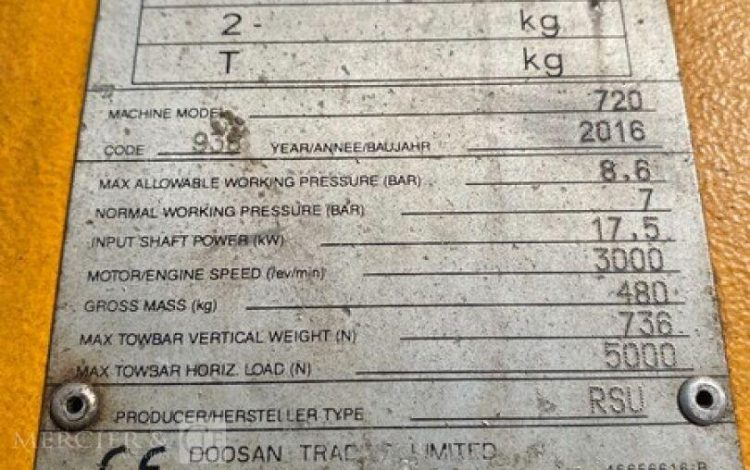 2- kg
T kg
MACHINE MODEL 720
CODE YEAR/ANNEE/BAUJAHR 2016
MAX ALLOWABLE WORKING PRESSURE (BAR) 8,6
NORMAL WORKING PRESSURE (BAR) 7
INPUT SHAFT POWER (kW) 17.5
MOTOR/ENGINE SPEED (lev/min) 3000
GROSS MASS (kg) 480
MAX TOWBAR VERTICAL WEIGHT (N) 736
MAX TOWBAR HORIZ. LOAD (N) 5000
PRODUCER/HERSTELLER TYPE RSU
CE DOOSAN LIMITED
MERCIER &